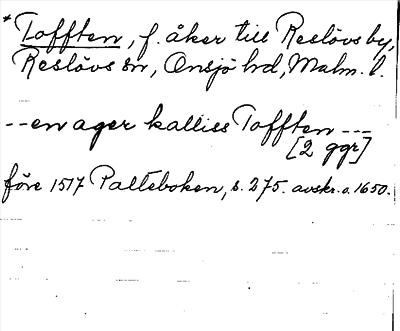 * Tofften, f. åker till Reslövs by,
Reslövs sn, Onsjö hd, Malm. l.
-- en ager kallies Tofften ---
[2 ggr]
före 1517 Palteboken, s. 275. avskr. o. 1650.